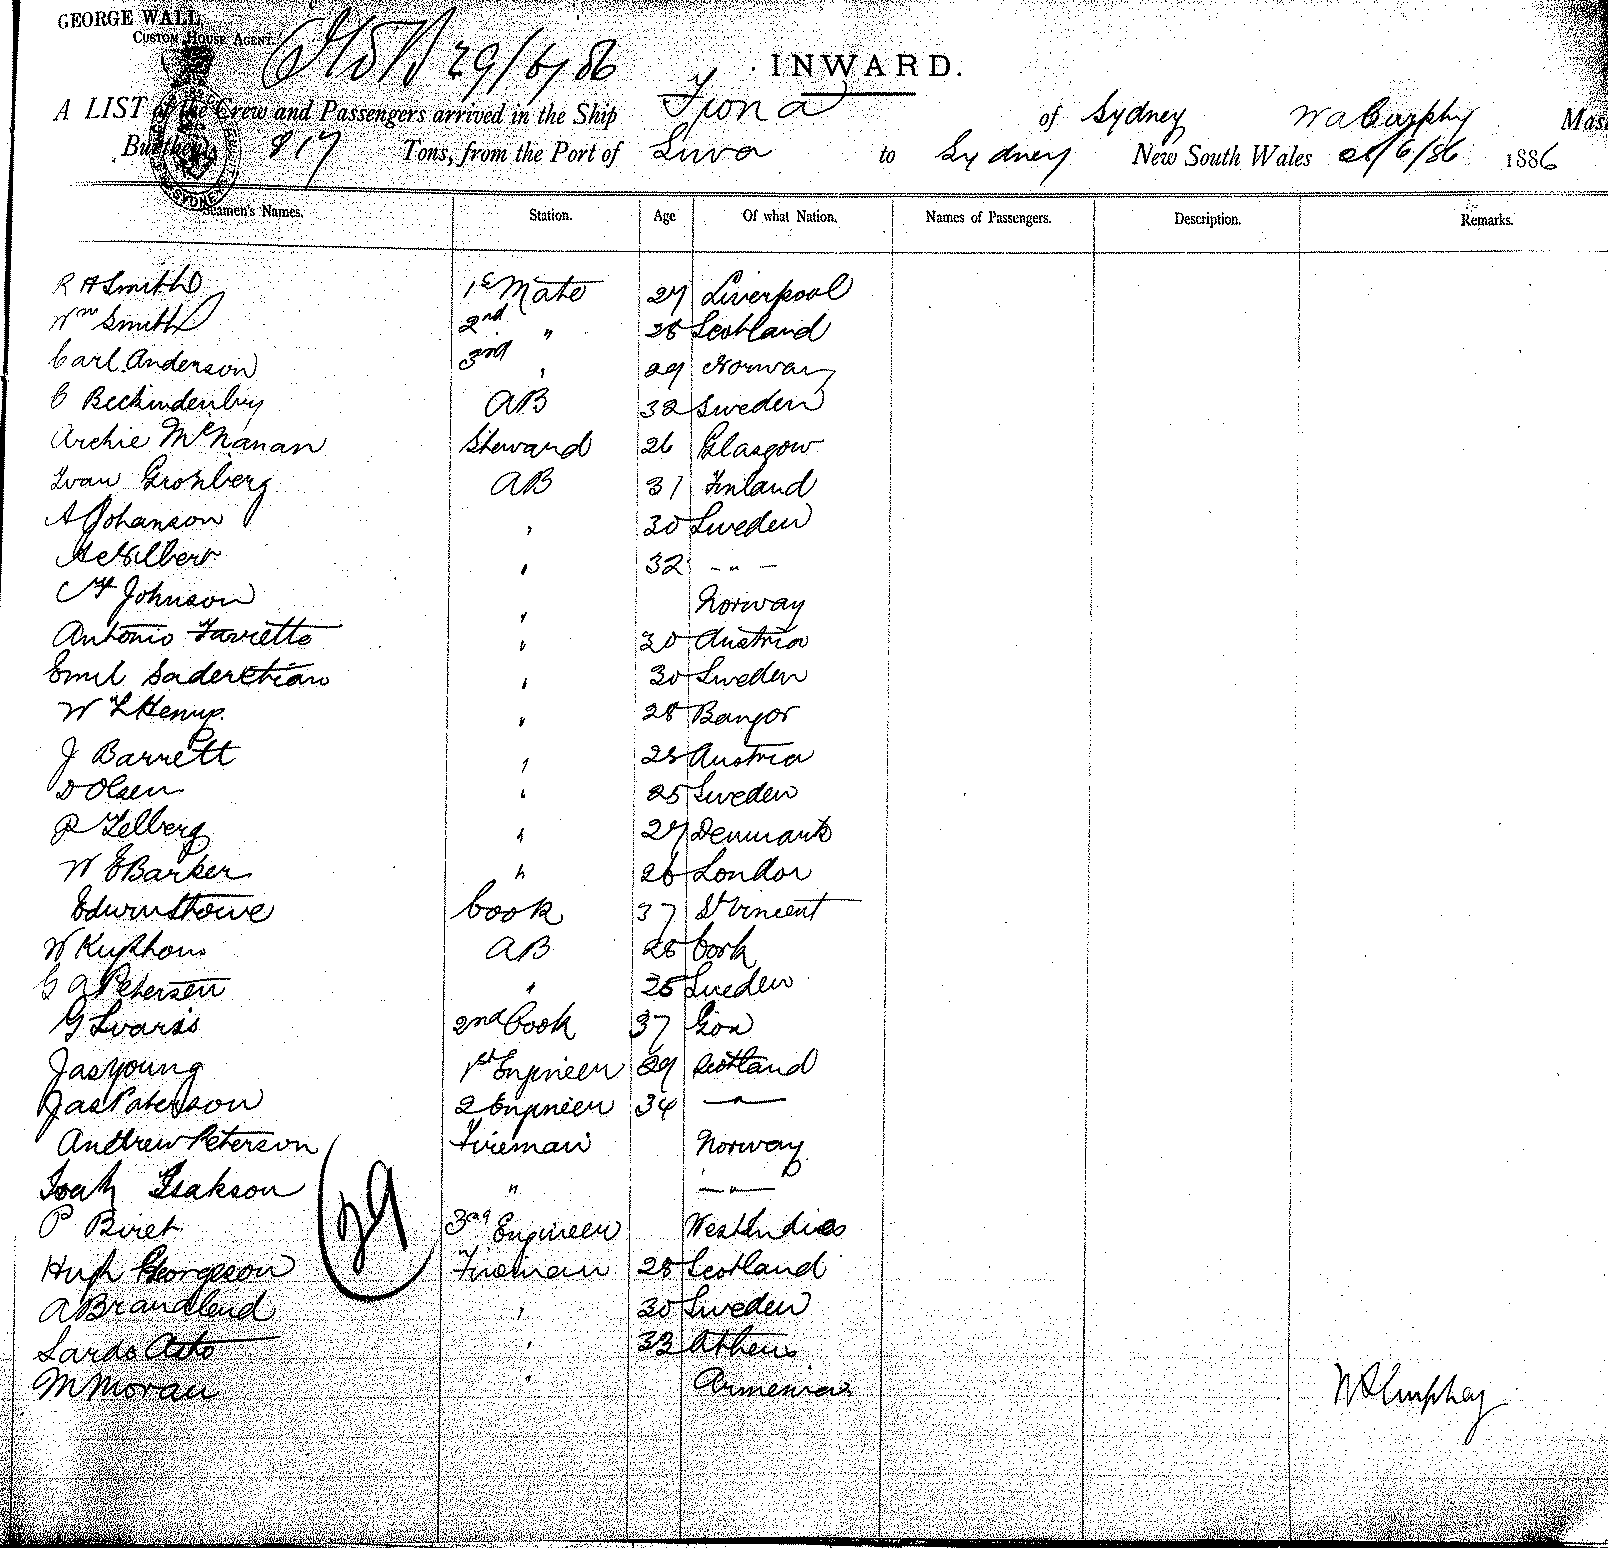 GEORGE WALL,
CUSTOM HOUSE AGENT.
29/6/86
INWARD.
A LIST of the Crew and Passengers arrived in the Ship Fiona of Sydney
Burthen 817 Tons, from the Port of Suva to Sydney New South Wales 1886
Seamen's Names. Station. Age Of what Nation. Names of Passengers. Description. Remarks.
R H Smith 1st Mate 27 Liverpool
Wm Smith 2nd " 28 Scotland
Carl Anderson 3rd " 29 Norway
C AB 32 Sweden
Archie Steward 26 Glasgow
Ivan Gronberg AB 31 Finland
A Johanson " 30 Sweden
32 - " -
Johnson " Norway
Antonio Favretto " 30 Austria
Emil " 30 Sweden
W " 28 Bangor
J Barrett " 28 Austria
D Olsen " 25 Sweden
P " 27 Denmark
W E Barker " 26 London
Edwin Stowe Cook 37 St Vincent
W AB 28 Cork
C A Petersen " 25 Sweden
G 2nd Cook 37 Goa
Jas Young 1st Engineer 29 Scotland
Jas Paterson 2 Engineer 34 - " -
Andrew Peterson Fireman Norway
Isakson " - " -
P Biret 3rd Engineer West Indies
Hugh Georgeson Fireman 28 Scotland
A Brandlend " 30 Sweden
" 33 Athens
M Moran " Armenia
29